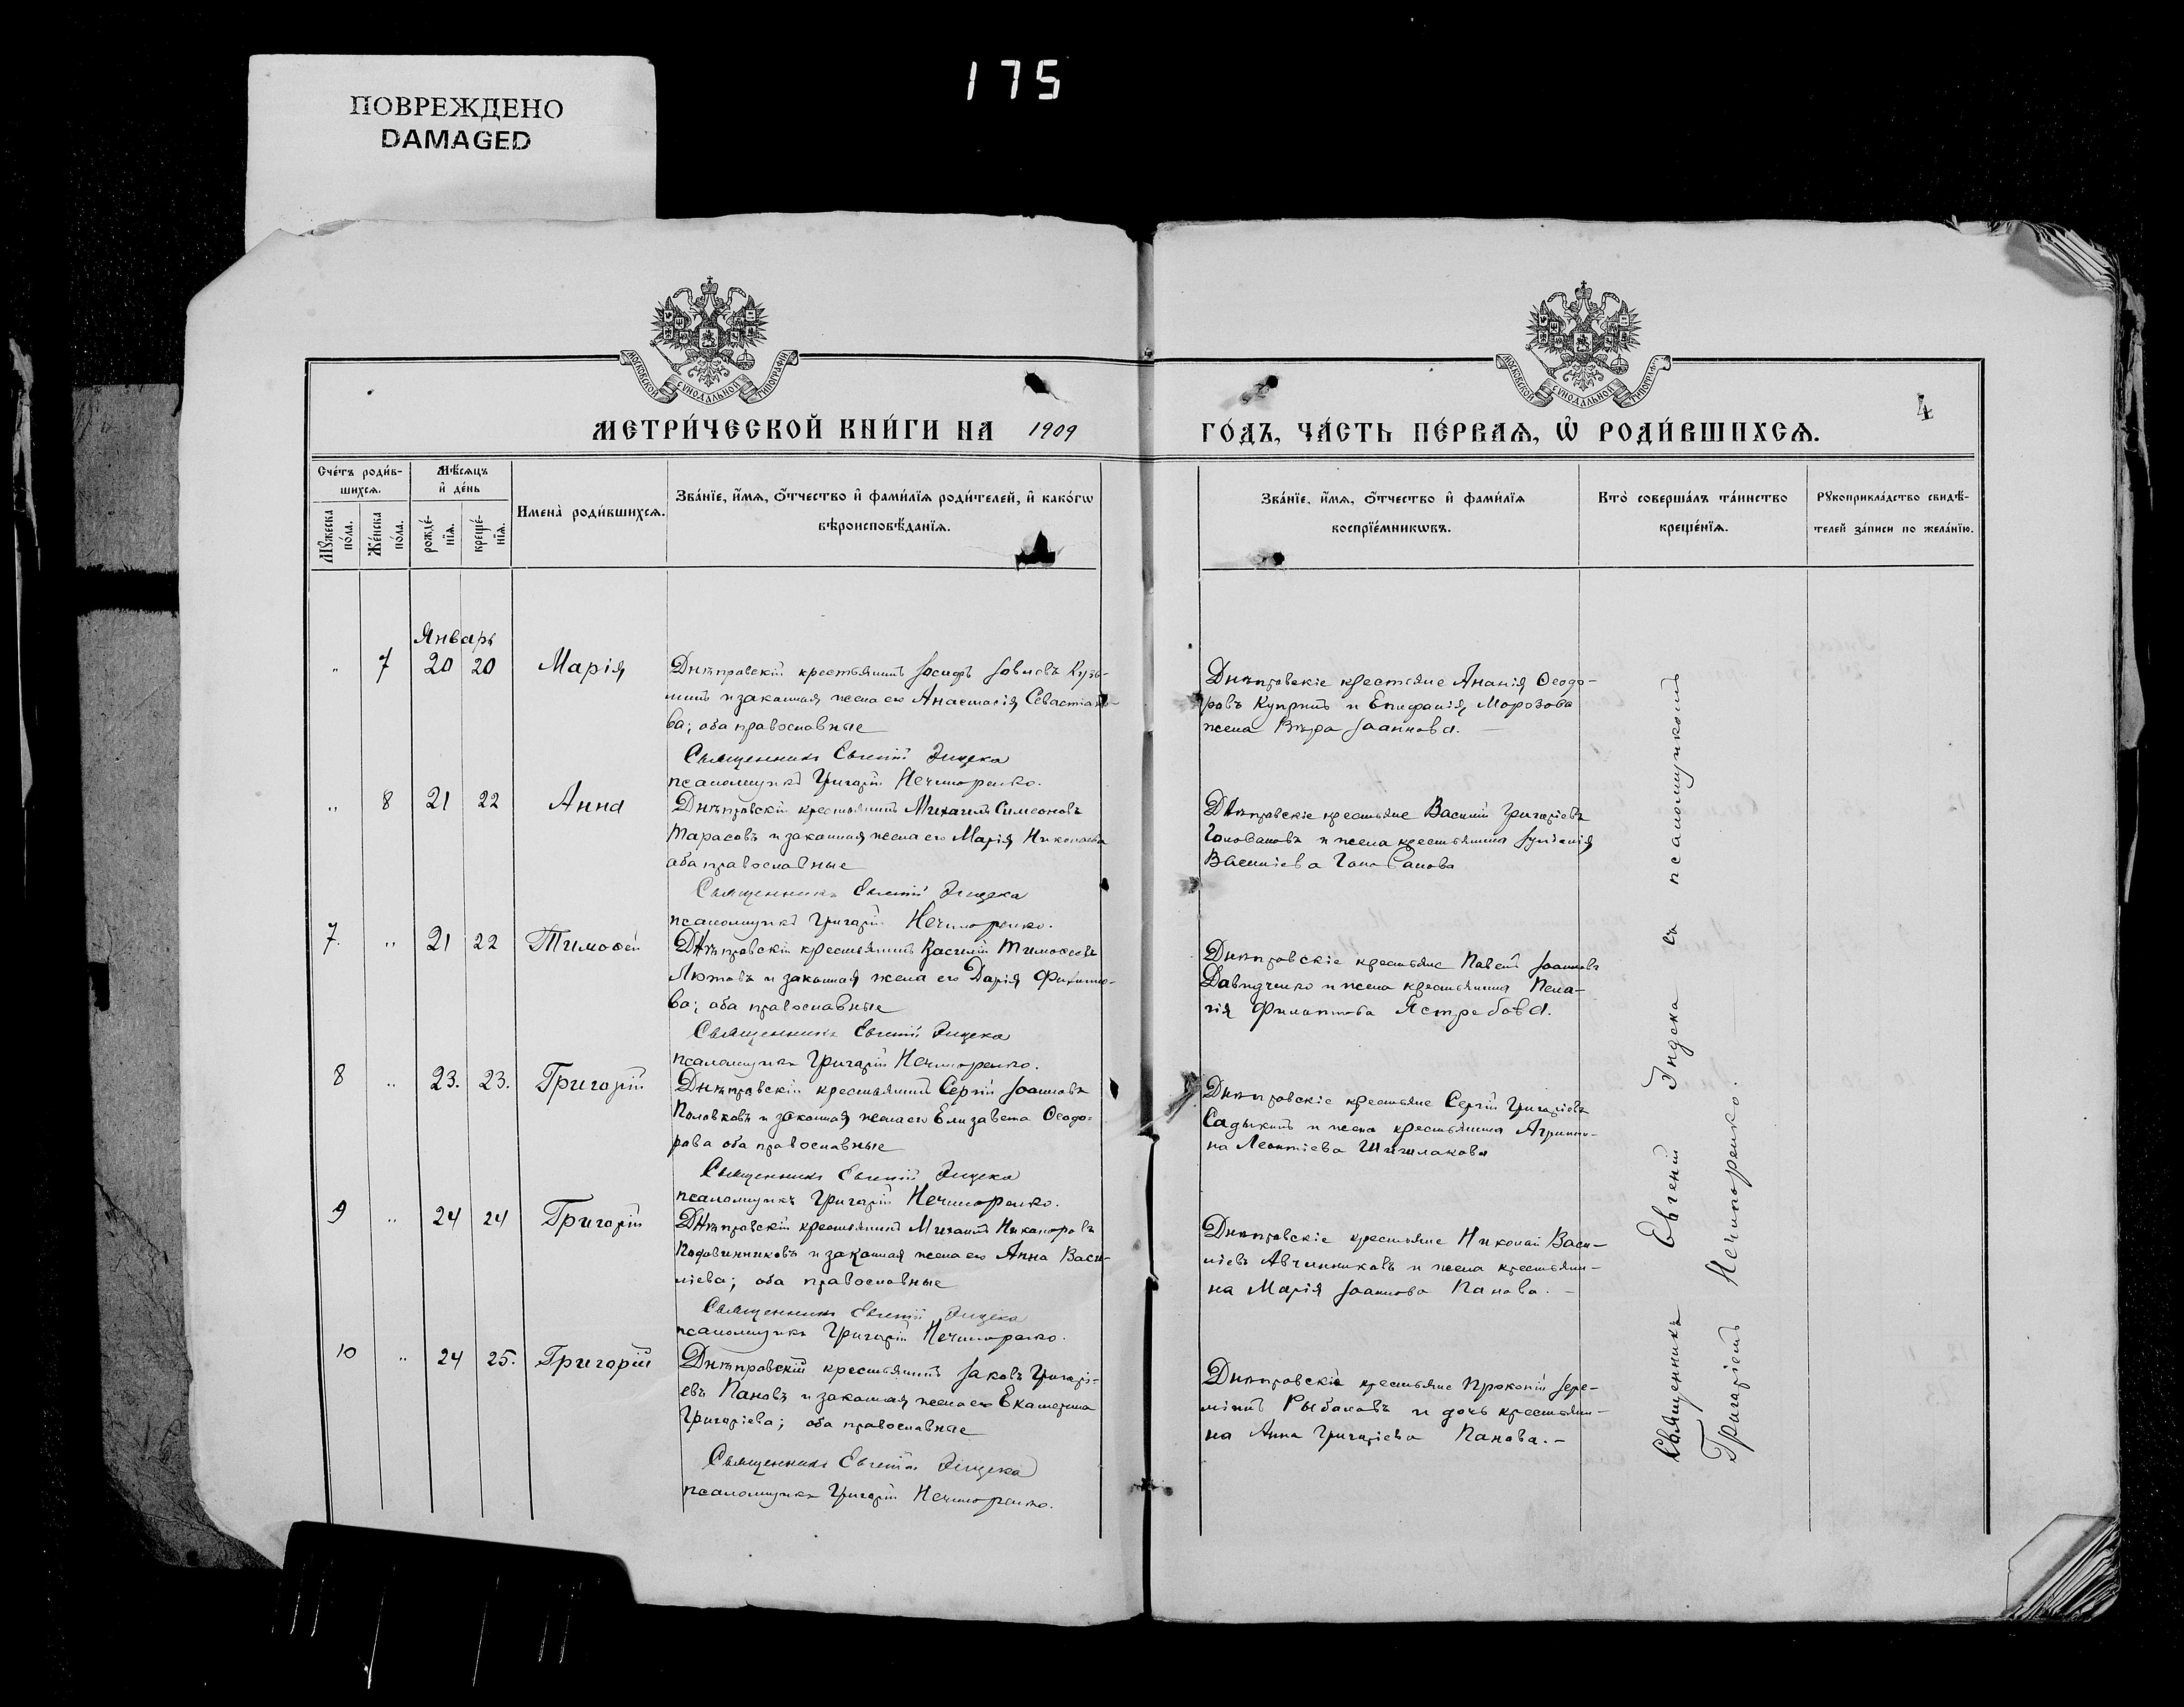 175
ПОВРЕЖДЕНО
DAMAGED
МОСКОВСКОЙ СѴНОДАЛЬНОЙ ТИПОГРАФІИ
МОСКОВСКОЙ СѴНОДАЛЬНОЙ ТИПОГРАФІИ
4
МЕТРИ́ЧЕСКОЙ КНИ́ГИ НА 1909
ГО́ДЪ, ЧА́СТЬ ПЕ́РВАѦ, Ѡ҆ РОДИ́ВШИХСѦ.
Сче́тъ роди́в-
шихсѧ.
Мѣ́сѧцъ
и҆ де́нь
Мꙋ́жеска
по́ла.
Же́нска
по́ла.
рожде́-
нїѧ.
креще́-
нїѧ.
Имена̀ роди́вшихсѧ.
Зва́нїе, и҆́мѧ, ѻ҆́тчество и҆ фами́лїѧ роди́телей, и҆ како́гѡ
вѣроисповѣ́данїѧ.
Зва́нїе, и҆́мѧ, ѻ҆́тчество и҆ фами́лїѧ
воспрїе́мникѡвъ.
Кто̀ соверша́лъ та́инство
креще́нїѧ.
Рꙋкоприкла́дство свидѣ́-
телей за́писи по жела́нїю.
Январь
" 7 20 20 Марія
Днѣпровскій крестьянинъ Іосифъ Іовлевъ Кузь-
минъ и законная жена его Анастасія Севастіано-
ва; оба православные
Священникъ Евгеній
псаломщикъ Григорій Нечипоренко.
Днѣпровскіе крестьяне Ананія Ѳеодо-
ровъ Купринъ и Морозова
жена Вѣра Іоаннова.
" 8 21 22 Анна
Днѣпровскій крестьянинъ Михаилъ Симеоновъ
Тарасовъ и законная жена его Марія Николаева
оба православные
Священникъ Евгеній
псаломщикъ Григорій Нечипоренко.
Днѣпровскіе крестьяне Василій Григорьевъ
Головановъ и жена крестьянина
Василіева Голованова
7. " 21 22 Тимоѳей
Днѣпровскій крестьянинъ Василій Тимоѳеевъ
Лютовъ и законная жена его Дарія Филиппо-
ва; оба православные
Священникъ Евгеній
псаломщикъ Григорій Нечипоренко.
Днѣпровскіе крестьяне Павелъ Іоанновъ
Давидченко и жена крестьянина Пела-
гія Филиппова Ястребова.
8 " 23. 23. Григорій
Днѣпровскій крестьянинъ Сергій Іоанновъ
Половковъ и законная жена его Елизавета Ѳеодо-
рова оба православные
Священникъ Евгеній
псаломщикъ Григорій Нечипоренко.
Днѣпровскіе крестьяне Сергій Григорьевъ
Садыкинъ и жена крестьянина Агриппи-
на Леонтіева
9 " 24 24 Григорій
Днѣпровскій крестьянинъ Михаилъ Никаноровъ
Подовинниковъ и законная жена его Анна Васи-
ліева; оба православные
Священникъ Евгеній
псаломщикъ Григорій Нечипоренко.
Днѣпровскіе крестьяне Николай Васи-
ліевъ Авчинниковъ и жена крестьяни-
на Марія Іоаннова Панова. -
10 " 24 25. Григорій
Днѣпровскій крестьянинъ Іаковъ Григорі-
евъ Пановъ и законная жена его Екатерина
Григоріева; оба православные
Священникъ Евгеній
псаломщикъ Григорій Нечипоренко.
Днѣпровскіе крестьяне Прокопій Іере-
міинъ Рыбаковъ и дочь крестьяни-
на Анна Григоріева Панова. -
Священникъ Евгеній съ псаломщикомъ
Григоріемъ Нечипоренко.